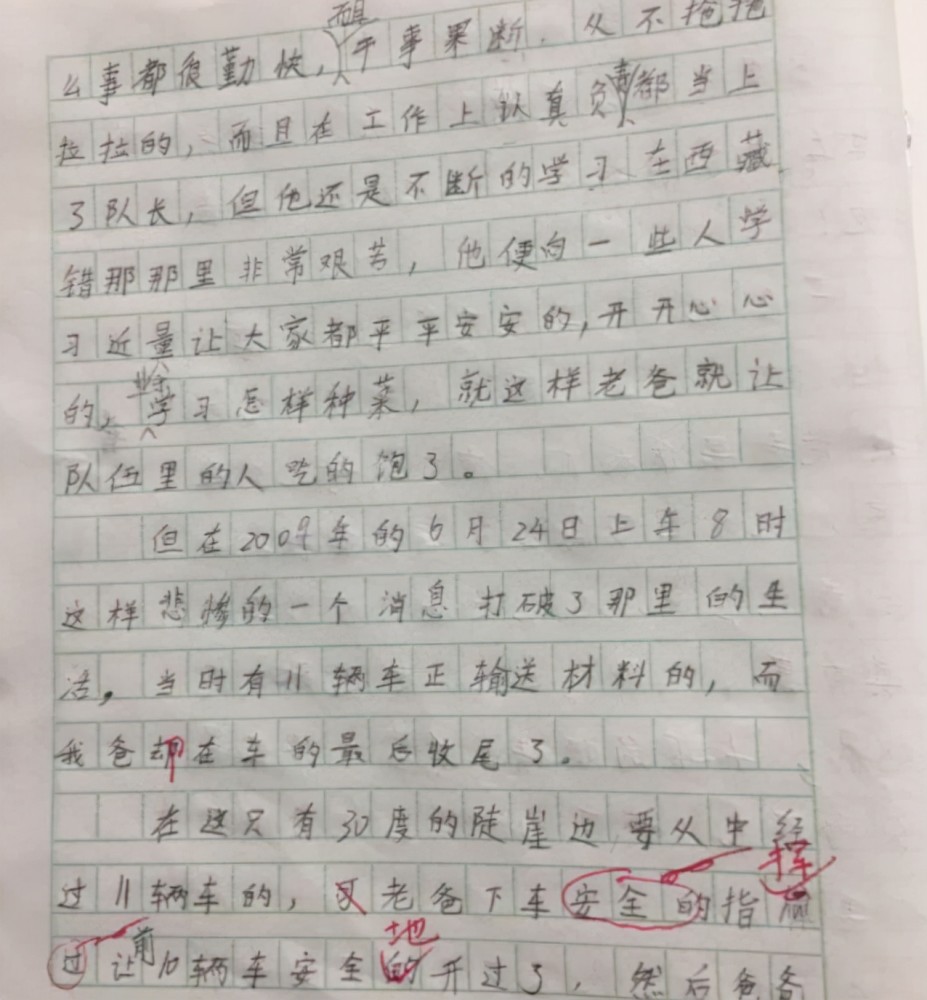 而且
么事都很勤快，干事果断．从不拖拖
责
拉拉的，而且在工作上认真负都当上
了队长，但他还是不断的学习在西藏
错那那里非常艰苦，他便向一些人学
习近量让大家都平平安安的，开开心心
的，学习怎样种菜，就这样老爸就让
队伍里的人吃的饱了。
但在2009年的6月24日上午8时
这样悲惨的一个消息打破了那里的生
活。当时有11辆车正输送材料的，而
我爸却在车的最后收尾了。
在这只有30度的陡崖边要从中经
挥
过11辆车的，老爸下车安全的指
地
过让前10辆车安全的开过了，然后爸爸